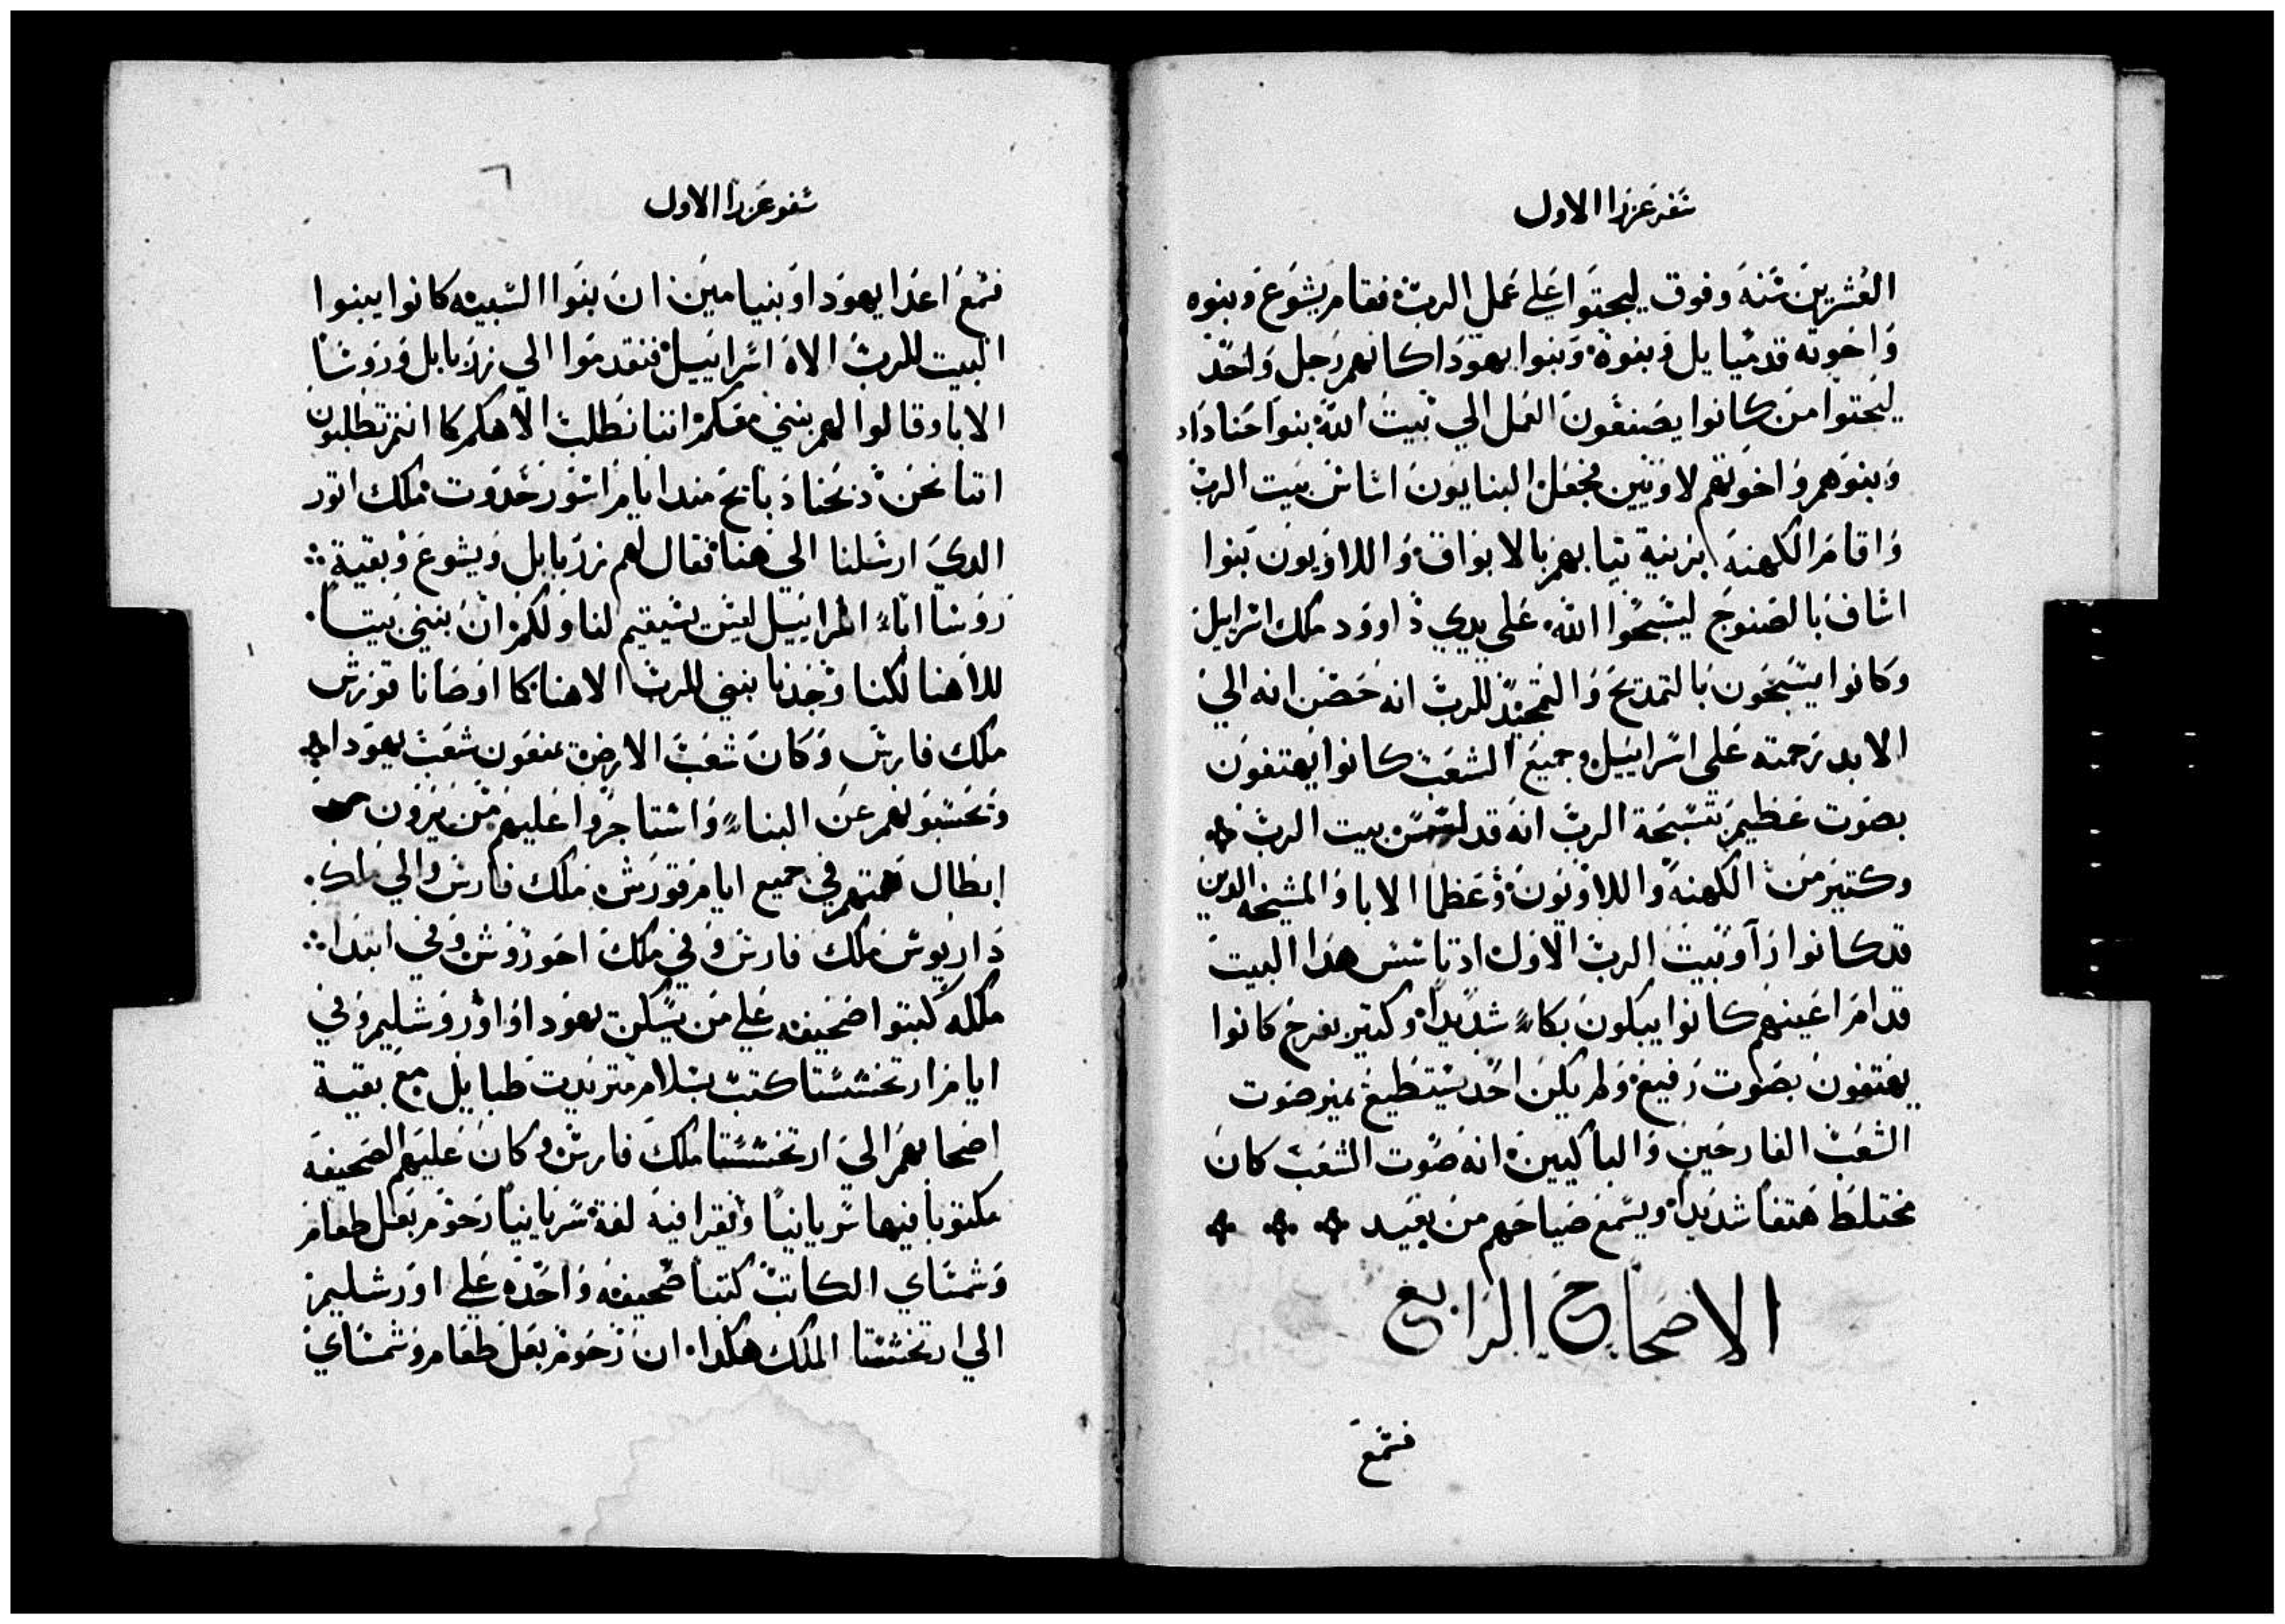 سفر عزرا الاول
العشرين سنه وفوق ليحثوا علي عمل الرب فقام يشوع وبنوه
واخوته قدميايل وبنوه وبنوا يهودا كانهم رجل واحد
ليحثوا من كانوا يصنعون العمل الي بيت الله بنوا حناداد
وبنوهم واخوتهم لاويين فجعل البنايون اساس بيت الرب
واقام الكهنه بزينة ثيابهم بالابواق واللاويون بنوا
اساف بالصنوج ليسبحوا الله علي يدي داوود ملك اسراييل
وكانوا يسبحون بالتمديح والتمجيد للرب انه حصن انه الي
الابد رحمته علي اسراييل وجميع الشعب كانوا يهتفون
بصوت عظيم بتسبحة الرب انه قد بيت الرب
وكتير من الكهنه واللاويون وعظما الابا والمشيخه الدين
قد كانوا راوا بيت الرب الاول اد تاسس هدا البيت
قدام اعينهم كانوا يبكون بكاء شديدا وكتير بفرح كانوا
يهتفون بصوت رفيع ولم يكن احد يستطيع يميز صوت
الشعب الفارحين والباكيين انه صوت الشعب كان
مختلط هتفا شديدا ويسمع صياحهم من بعيد
الاصحاح الرابع
فسمع
٦
سفر عزرا الاول
فسمع اعدا يهودا وبنيامين ان بنوا السبيه كانوا يبنوا
البيت للرب الاه اسراييل فتقدموا الي زربابل وروسا
الابا وقالوا لهم نبني معكم اننا نطلب الاهكم كما انتم تطلبون
اننا نحن دبحنا دبايح مند ايام اسور حدوت ملك اتور
الدي ارسلنا الي هنا فقال لهم زربابل ويشوع وبقية
روسا اباء اسراييل ليس يستقيم لنا ولكم ان نبني بيتا
لالاهنا لكنا وحدنا نبني للرب الاهنا كما اوصانا قورش
ملك فارس وكان شعب الارض يمنعون شعب يهودا
ويحسبونهم عن البناء واستاجروا عليهم من يرون
ابطال همتهم في جميع ايام قورش ملك فارس والي ملك
داريوس ملك فارس وفي ملك احوروش وفي ابتدا
ملكه كتبوا صحيفه علي من يسكن يهودا واورشليم وفي
ايام ارتخششتا كتب بسلام متريدت طبايل مع بقية
اصحابهم الي ارتخششتا ملك فارس وكان عليهم الصحيفه
مكتوبا فيها سريانيا ويقرا فيه لغة سريانيا رحوم بعل طعام
وشمشاي الكاتب كتبا صحيفه واحده علي اورشليم
الي ارتخششتا الملك هكدا ان رحوم بعل طعام وشمشاي